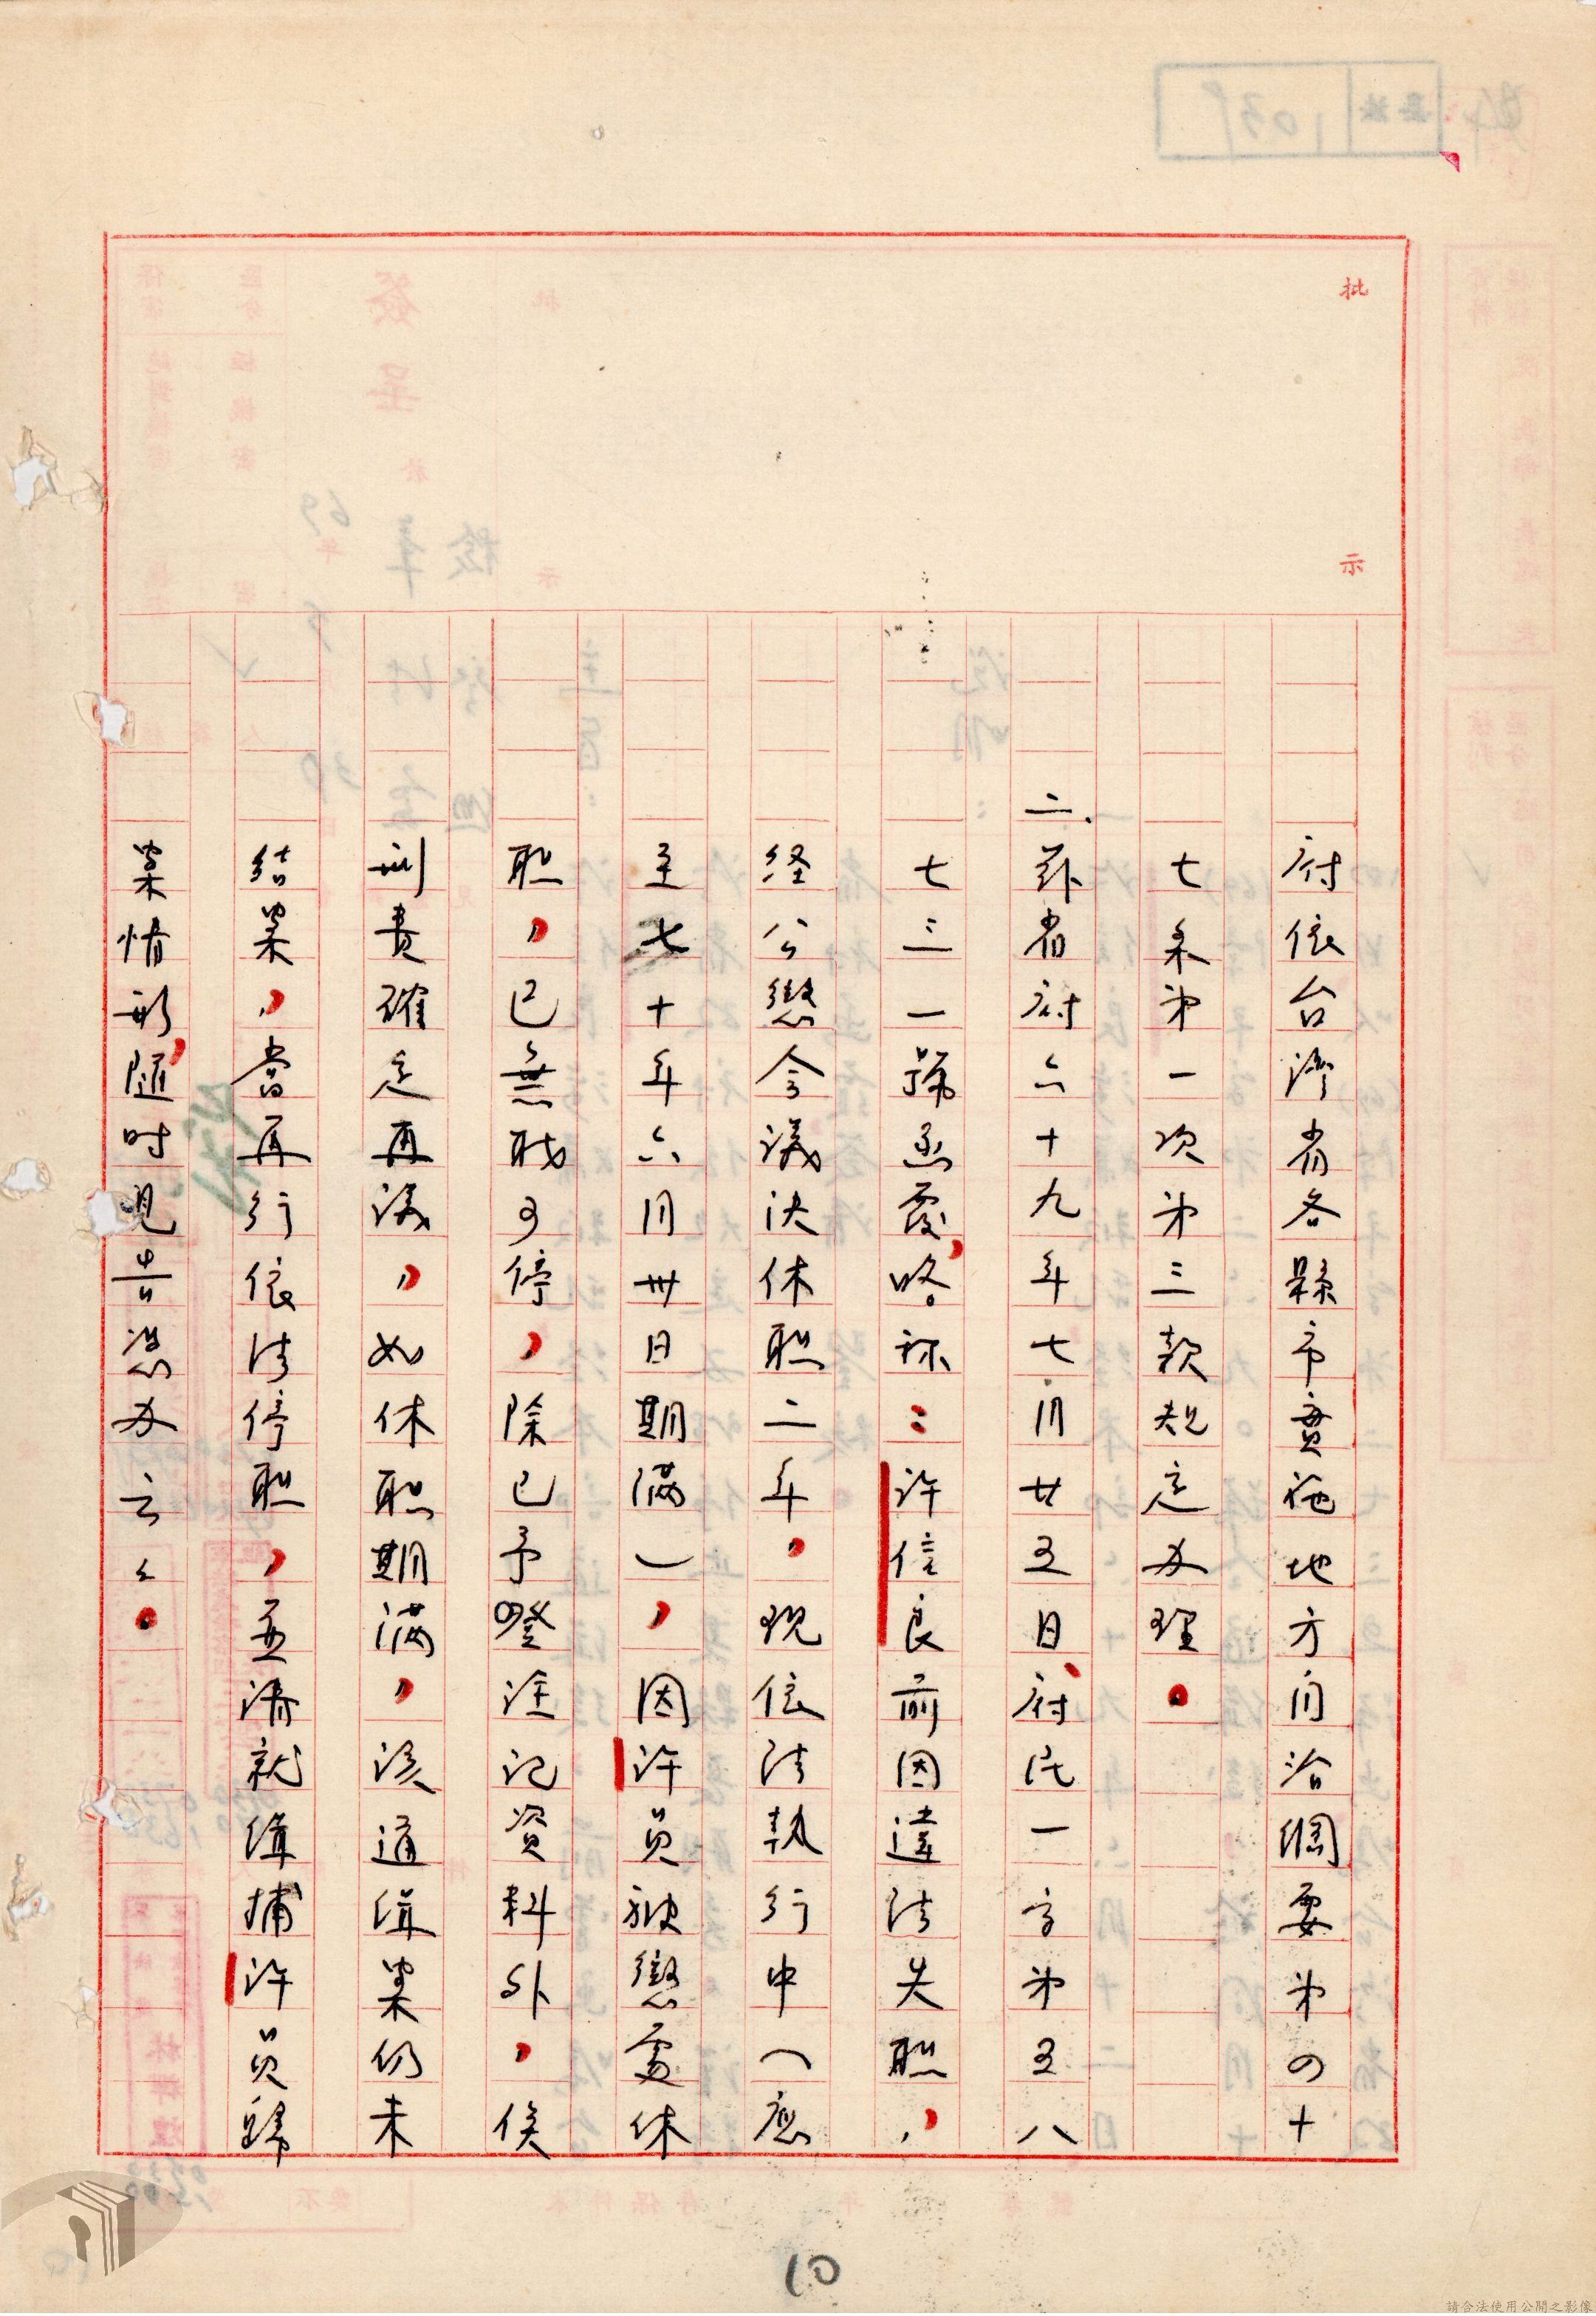 批示
府依台灣省各縣市實施地方自治綱要第四十
七条第一次第三款規定办理。
二、茲省府六十九年七月廿五日府民一字第五八
七三一號函覆略称：許信良前因違法失职，
经公懲会議决休职二年，現依法执行中（應
至七十年六月卅日期滿），因許員被懲處休
职，已無职可停，除已予登註記資料外，俟
刑责確定再議，如休职期滿，該通缉案仍未
结案，當再行依法停职，並请就缉捕許員歸
案情形，随时見告憑办云云。
10
請合法使用公開之影像